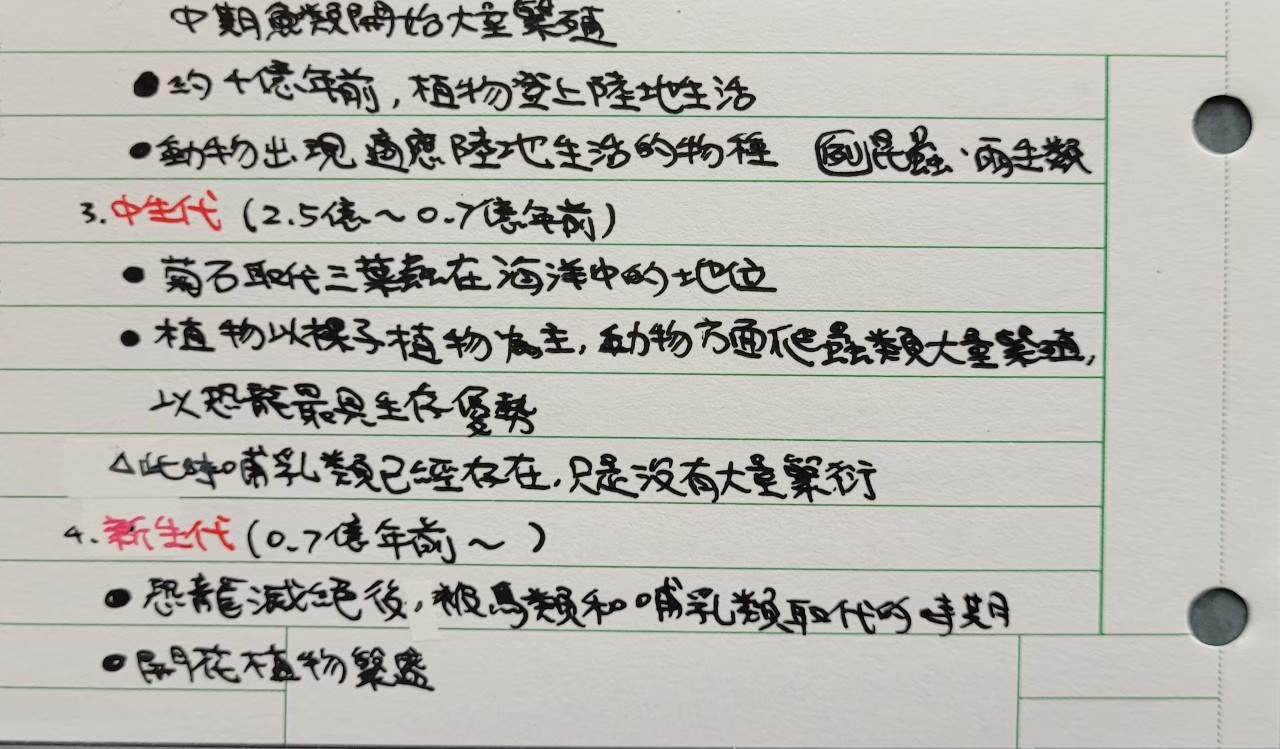 中期魚類開始大量繁殖
●約十億年前,植物登上陸地生活
●動物出現適應陸地生活的物種 例昆蟲、兩生類
3.中生代(2.5億~0.7億年前)
●菊石取代三葉蟲在海洋中的地位
●植物以裸子植物為主,動物方面爬蟲類大量繁殖,
以恐龍最具生存優勢
△此時哺乳類已經存在,只是沒有大量繁衍
4.新生代(0.7億年前~ )
●恐龍滅絕後,被鳥類和哺乳類取代的時期
●開花植物繁盛